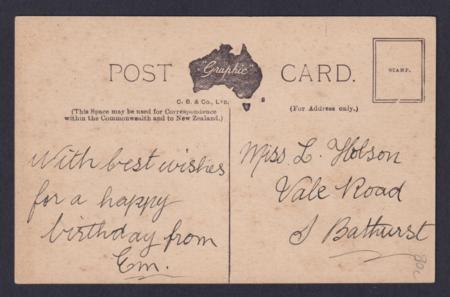 POST Graphic CARD.
C. B. & Co., Ltd.
STAMP.
(This Space may be used for Correspondence
within the Commonwealth and to New Zealand.)
(For Address only.)
With best wishes
for a happy
birthday from
Em.
Miss L. Hobson
Vale Road
S Bathurst
80c